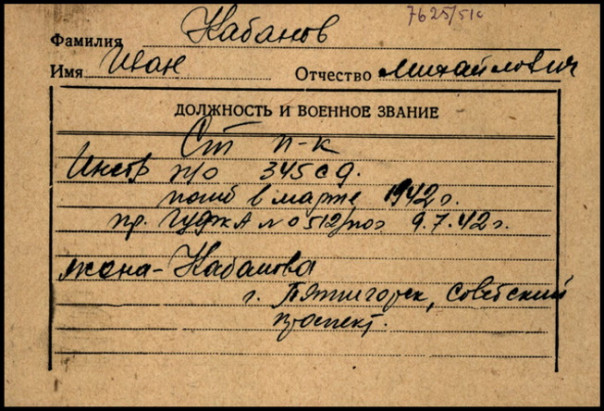 7625/51с
Фамилия Кабанов
Имя Иван Отчество Михайлович
ДОЛЖНОСТЬ И ВОЕННОЕ ЗВАНИЕ
Ст п-к
Инстр п/о 345 с д.
погиб в марте 1942 г.
пр. ГУФКА № 0512/пог 9.7.42 г.
жена - Кабанова
г. Пятигорск, Советский
проспект.